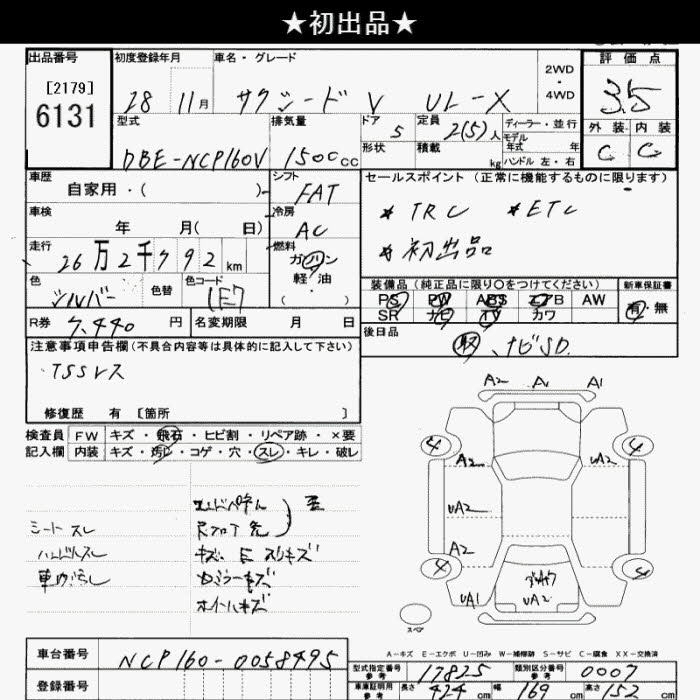 ★初出品★
出品番号 初度登録年月 車名・グレード 2WD・4WD 評価点
[2179]
6131
28 11月 サクシード V UL-X 3.5
型式 排気量 ドア 定員 ディーラー・並行 外装 内装
DBE-NCP160V 1500cc 5 2(5)人 モデル年式 年 C C
形状 積載 kg ハンドル 左・右
車歴 シフト セールスポイント(正常に機能するものに限ります)
自家用・( ) FAT
* TRC * ETC
車検 冷房
年 月( 日) AC
* 初出品
走行 燃料
26万2千792km ガソリン・軽・油( )
色 色替 色コード 装備品(純正品に限り○をつけてください) 新車保証書
シルバー 1E7 PS PW ABS エアB AW 有・無
SR ナビ TV カワ
R券 7,440円 名変期限 月 日 後日品
取、ナビSD.
注意事項申告欄(不具合内容等は具体的に記入して下さい)
TSSレス
修復歴 有 [箇所 ]
検査員 FW キズ・飛石・ヒビ割・リペア跡・×要
記入欄 内装 キズ・汚れ・コゲ・穴・スレ・キレ・破レ
シートスレ
ハンドルスレ
車内汚れ
ホイールキズ
A2 A1 A1
4 4
A2 UA2
UA2
A2
4 4
UA1 UA2
スペア
A-キズ E-エクボ U-凹み W-補修跡 S-サビ C-腐食 XX-交換済
車台番号 NCP160-0058495
登録番号
型式指定番号 参考 17825 類別区分番号 参考 0007
車車証明用 参考 長さ 424cm 幅 169cm 高さ 152cm